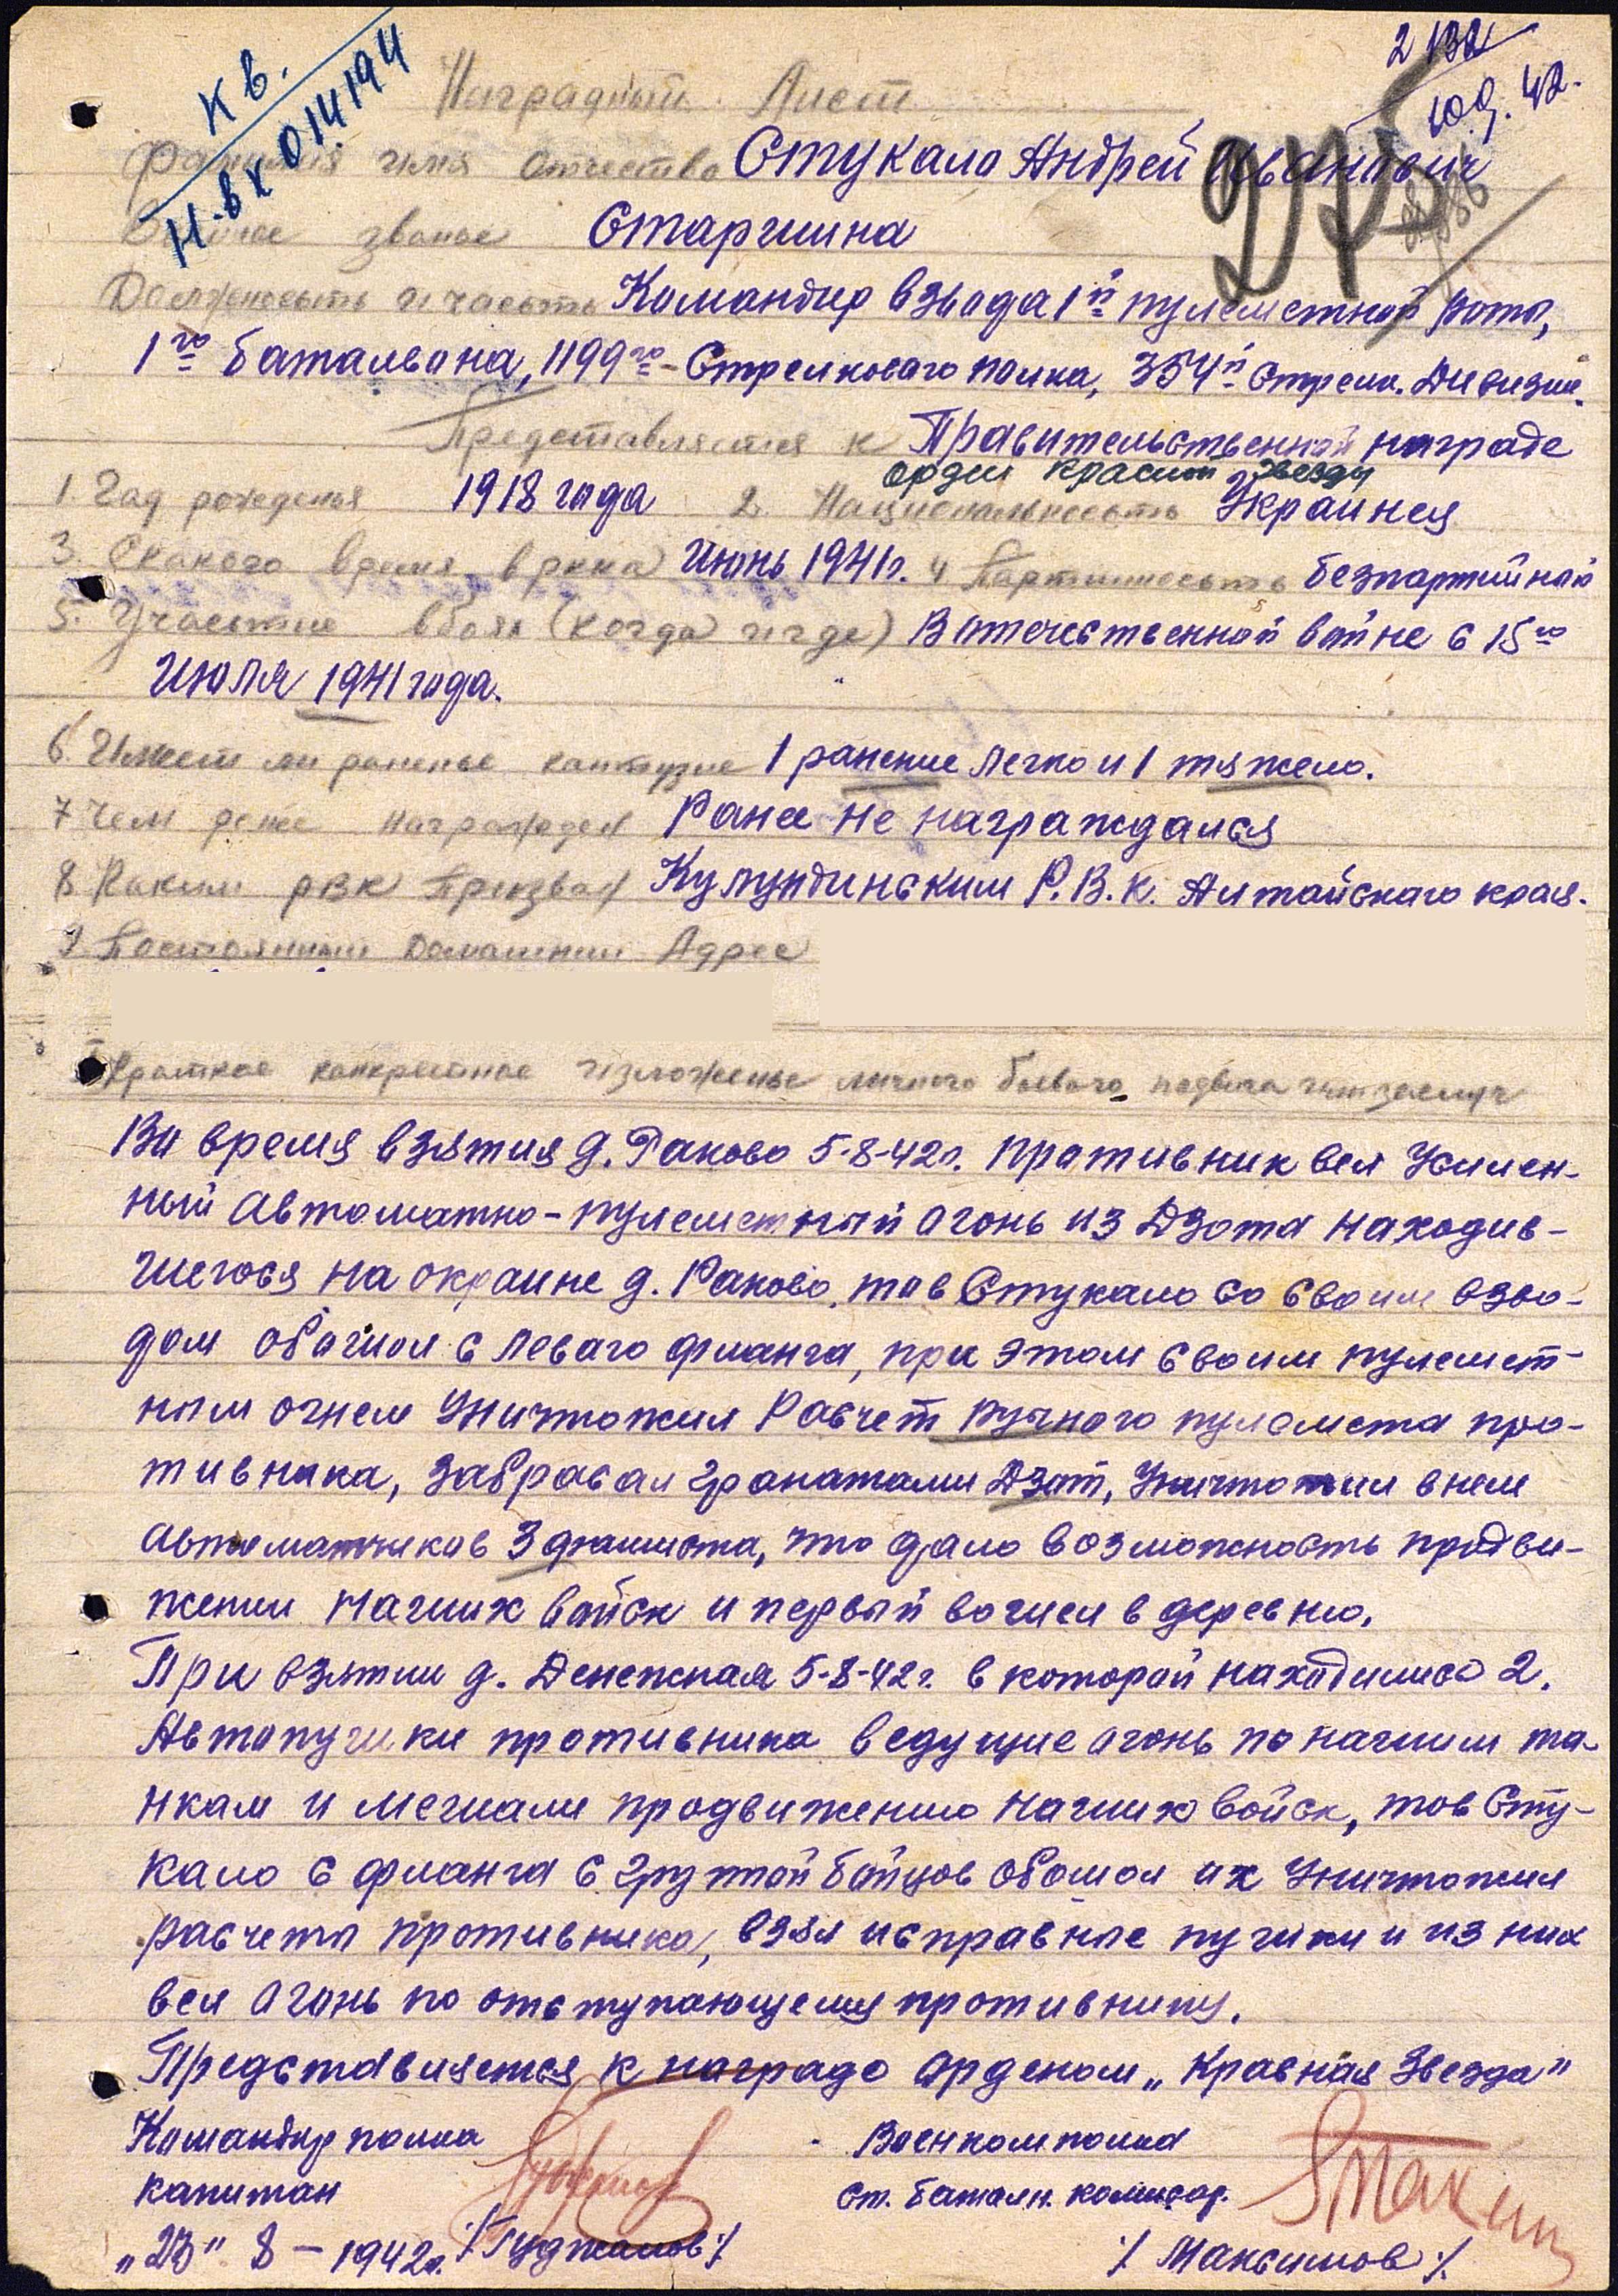 кв.
Н.вх 014194
2 132
юд. 42.
Наградный Лист
Фамилия имя отчество Стукало Андрей Иванович
Военое званье Старшина
Должносьть и часьть Командир взвода 1й пулеметной роты,
1го баталъона, 1199го - Стрелковаго полка, 354й Стрелк. Дивизии.
Представляется к Правительственной награде
орден Красной звезды
1. Год рожденья 1918 года 2. Национальносьть Украинец
3. Скакого время в ркка Июнь 1941г. 4 Партийносьть безпартийной
5. Участие вбоях (когда игде) В отечественной войне с 15го
Июля 1941 года.
6. Имеет ли раненье контузие 1 ранение легко и 1 тяжело.
7 Чем ране награжден Ранее не награждался
8 Каким рвк Призван Кулундинским Р.В.К. Алтайскаго края.
9. Постоянный Домашний Адрес
Краткое конкретное изложенье личного боевого подвига
Во время взятия д. Раково 5-8-42г. противник вел Усилен-
ный Автоматно-пулеметный огонь из Дзота находив-
шегося на окраине д. Раково, тов Стукало со своим взво-
дом обошол с леваго фланга, при этом своим пулемет-
ным огнем Уничтожил Расчет ручного пулемета про-
тивника, забрасал гранатами Дзот, Уничтожил внем
Автоматчиков 3 фашиста, что дало возможность продви-
жении наших войск и первый вошел в деревню.
При взятии д. Денежная 5-8-42г. в которой находились 2.
Автопушки противника ведущие огонь по нашим та-
нкам и мешали продвижению наших войск, тов Сту-
кало с фланга с групой бойцов обошол их Уничтожил
расчеты противника, взял исправные пушки и из них
вел огонь по отступающему противнику.
Представляется к награде орденом „Красная Звезда"
Командир полка Военком полка
Капитан ст. батальн. комиссар.
„23" 8 - 1942г. /Гуджапов/ / Максимов /.